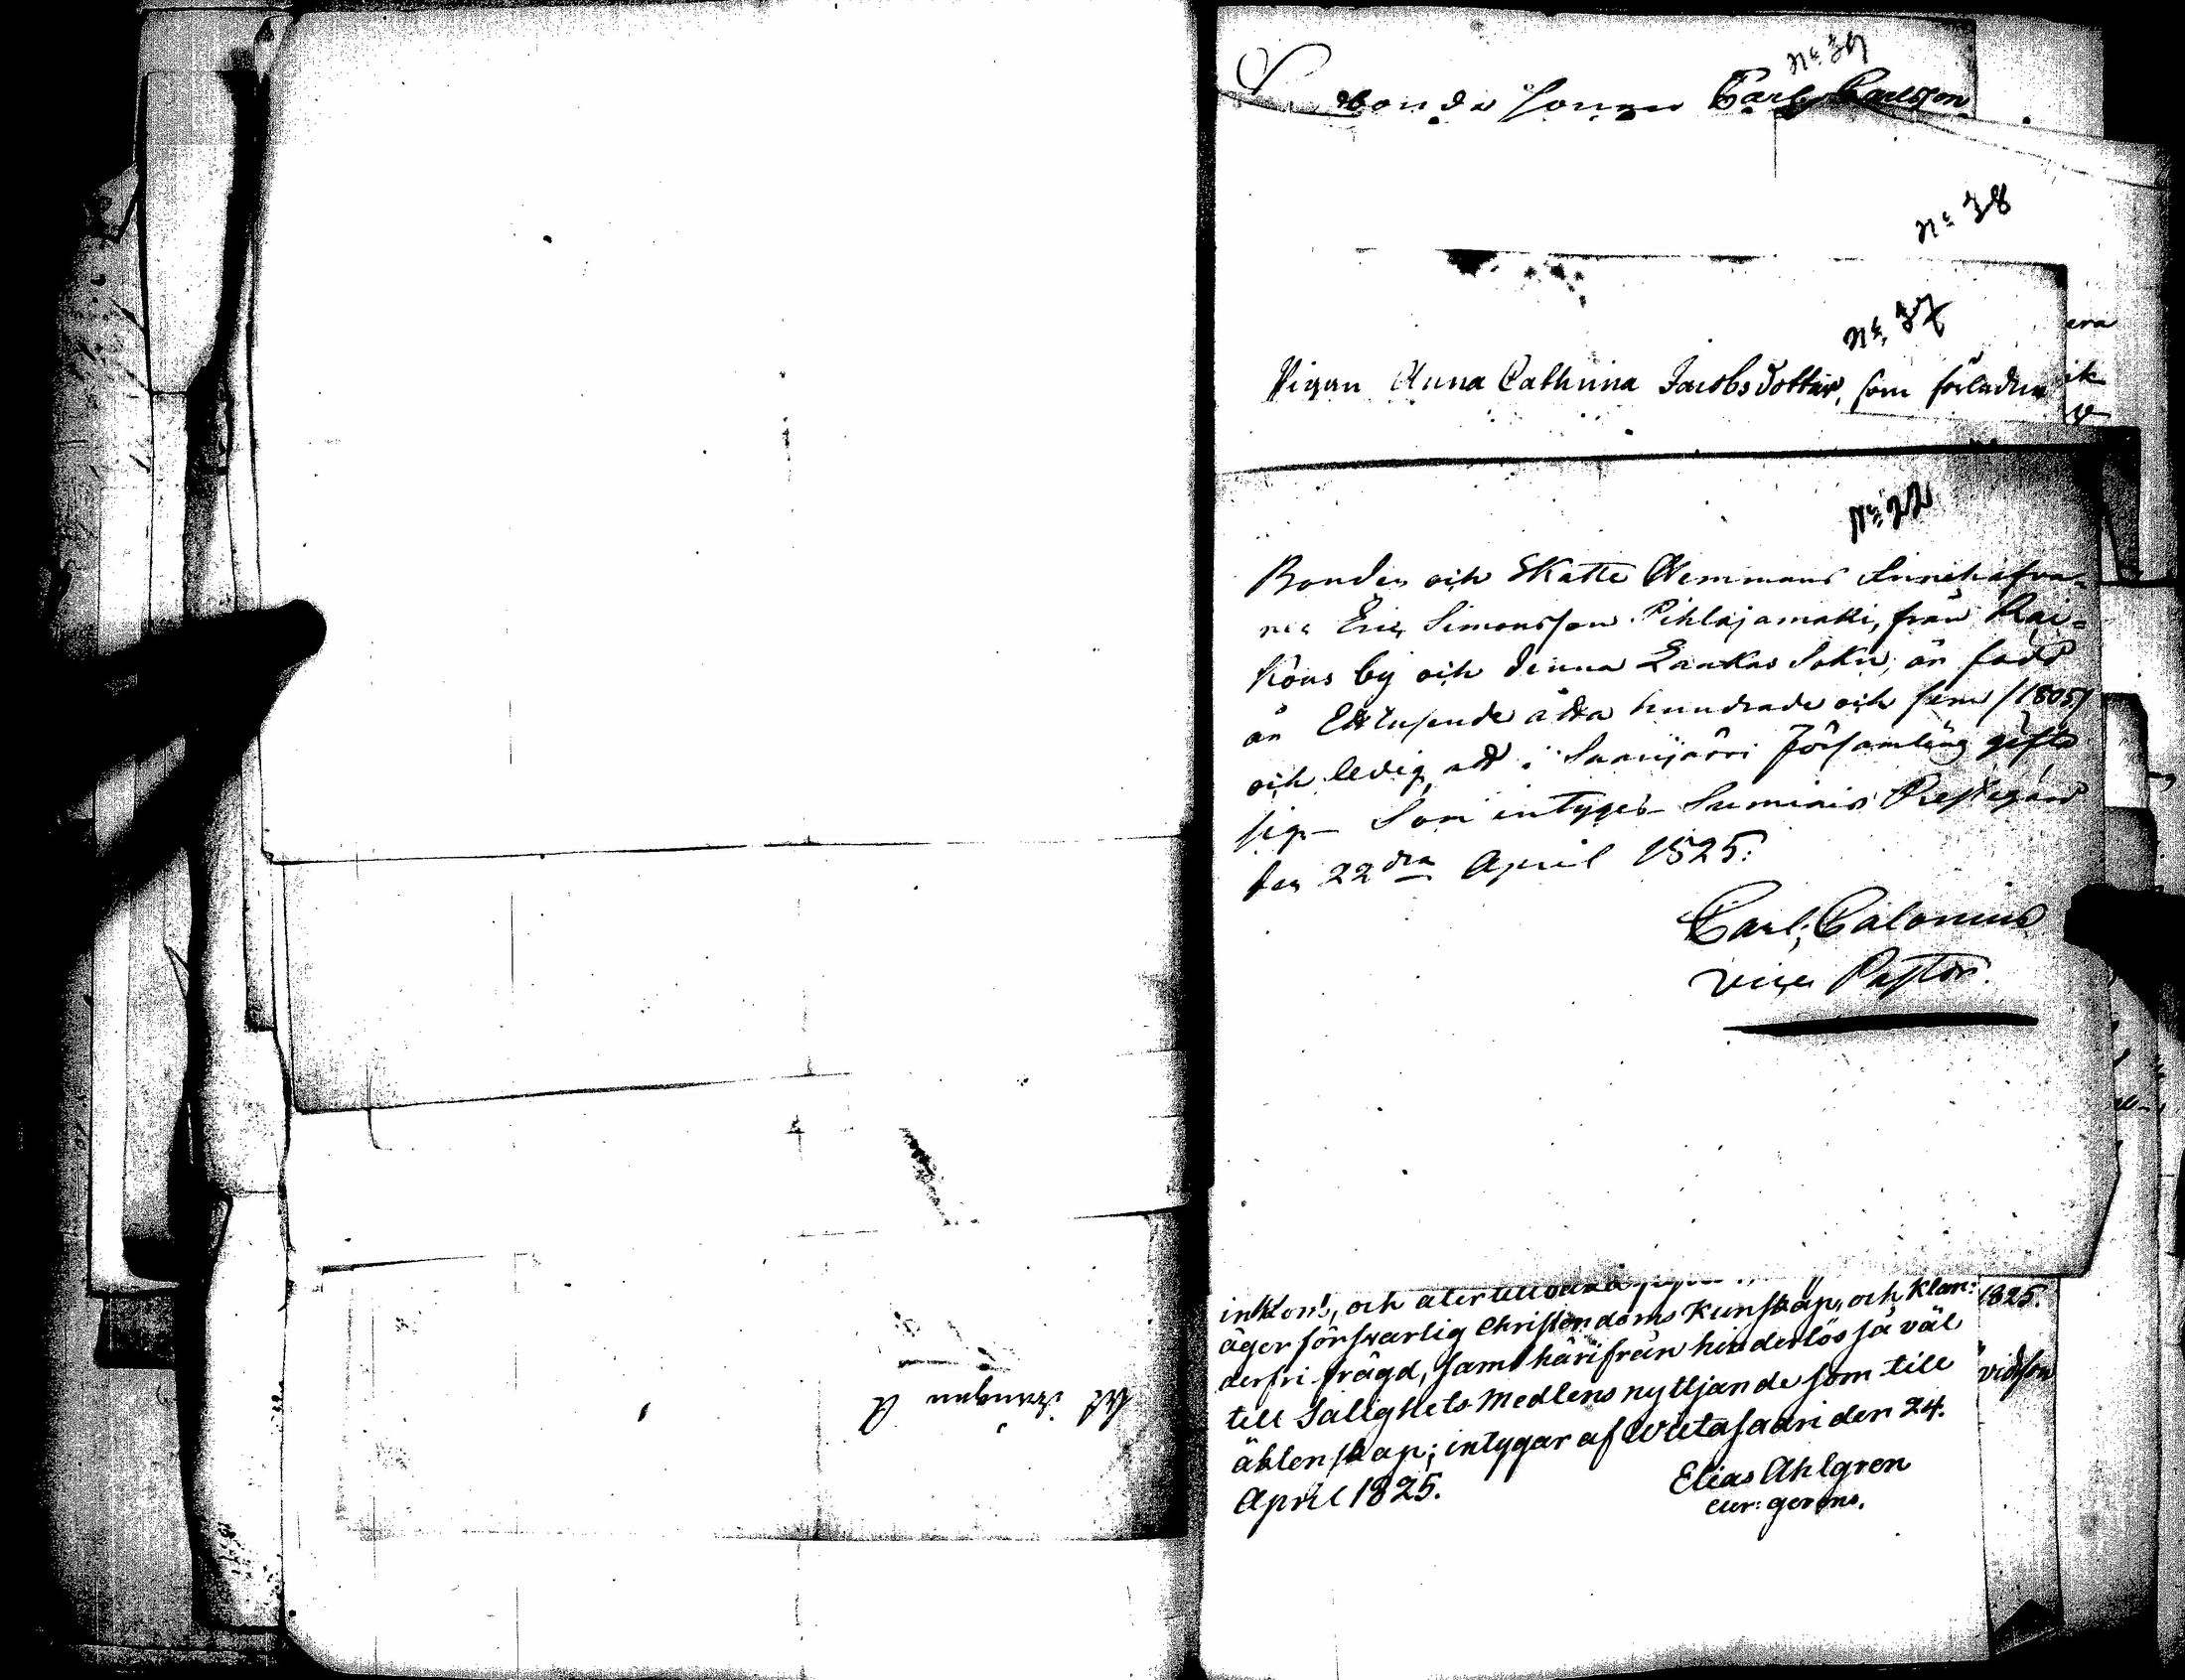 N:o 39
Bonde Sonen Carl Carlsson
N:o 38
N:o 37
Pigan Anna Cathrina Jacobsdotter, som förledne
N:o 22
Bonden och Skatte Hemmans Innehafva=
ren Eric Simonsson Pihlajamäki, från Rai=
köns by och denna Laukas Sokn, är född
år Ett tusende åtta hundrade och fem /1805/
och ledig att i Saarijärvi Församling gifta
sig. Som intygas Sumiais Prestegård
den 22dra April 1825:
Carl Calonius
Vice Pastor.
inkom!, och åter
äger försvarlig Christendoms Kunskap, och klan:
derfri frägd, samt härifrån hinderlös så väl
till Salighets Medlens nyttjande som till
äktenskap; intygar af Wiitasaari den 24.
April 1825.
Elias Ahlgren
cur: gerens.
1825.
vidsson